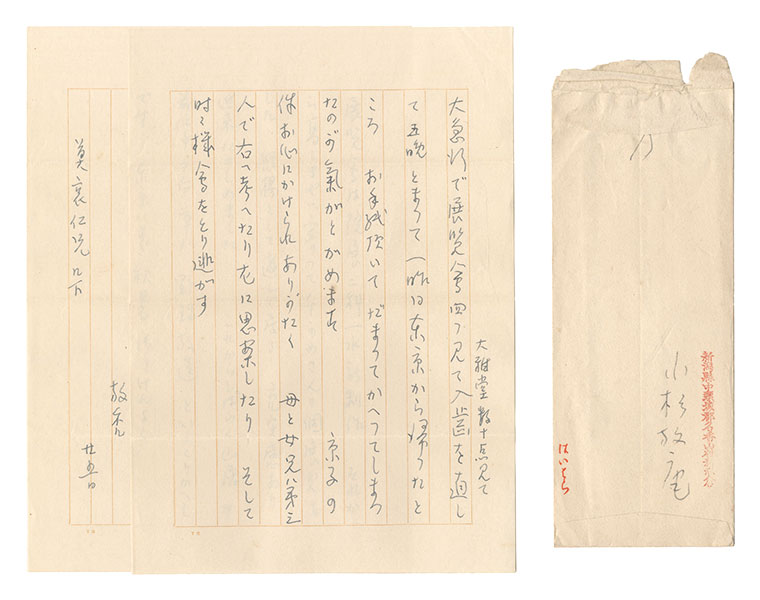 大雅堂 数十点見て
大急行で展覧會四つ見て入歯を直し
て 五晩とまつて 一昨日東京から帰つたと
ころ お手紙頂いて だまつてかへつてしまつ
たのが氣がとがめます 京子の
件お心にかけられありがたく 母と
人で右へ考へたり左に思案したり そして
時々機會をとり逃がす
放菴
廿五日
莫哀仁兄 几下
〆
新潟縣中頸城郡名香山村
小杉放庵